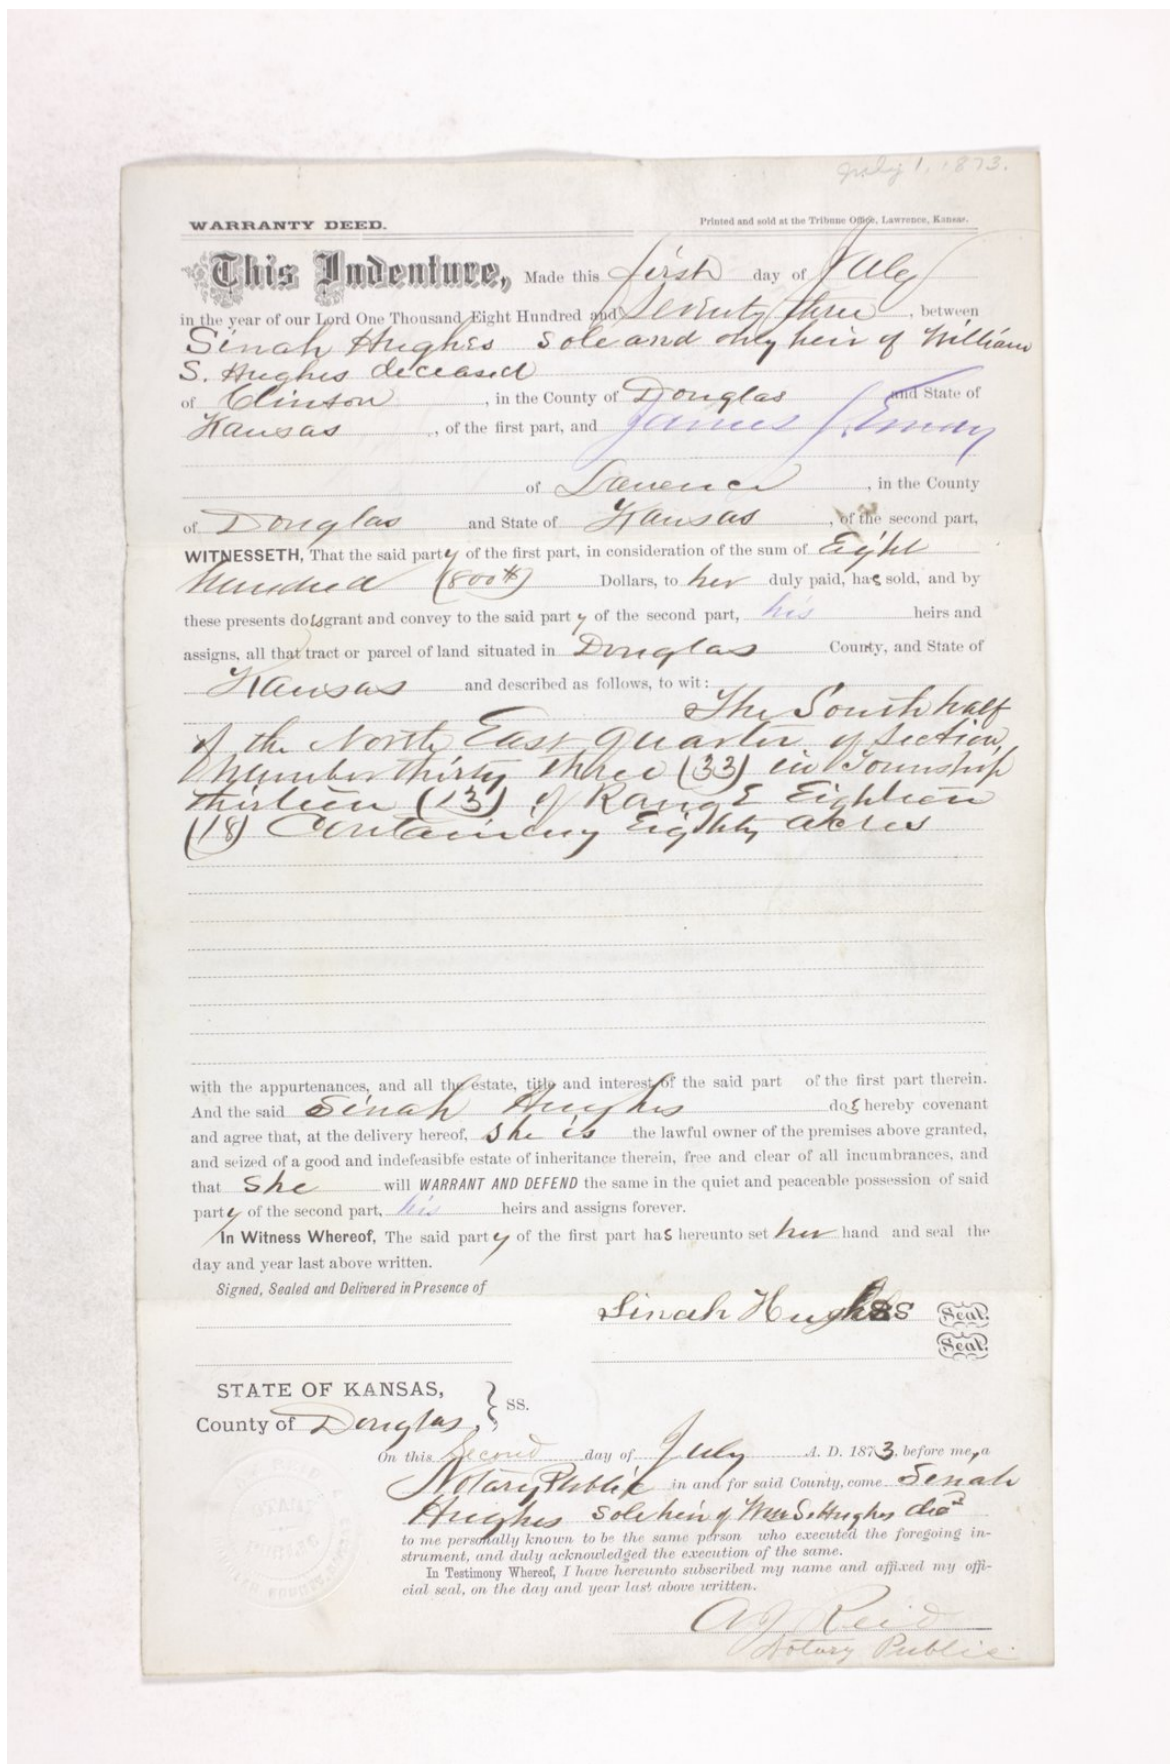 July 1, 1873.
WARRANTY DEED.
Printed and sold at the Tribune Office, Lawrence, Kansas.
This Indenture, Made this first day of July
in the year of our Lord One Thousand Eight Hundred and Seventy three, between
Sinah Hughes Sole and only heir of William
S. Hughes deceased
of Clinton, in the County of Douglas and State of
Kansas, of the first part, and James S. Emery
of Lawrence, in the County
of Douglas and State of Kansas, of the second part,
WITNESSETH, That the said party of the first part, in consideration of the sum of Eight
hundred (800 Dollars, to her duly paid, has sold, and by
these presents does grant and convey to the said party of the second part, his heirs and
assigns, all that tract or parcel of land situated in Douglas County, and State of
Kansas and described as follows, to wit:
The South half
of the North East quarter of Section
number thirty three (33) in Township
thirteen (13) of Range Eighteen
(18) Containing Eighty acres
with the appurtenances, and all the estate, title and interest of the said part of the first part therein.
And the said Sinah Hughes does hereby covenant
and agree that, at the delivery hereof, she is the lawful owner of the premises above granted,
and seized of a good and indefeasible estate of inheritance therein, free and clear of all incumbrances, and
that She will WARRANT AND DEFEND the same in the quiet and peaceable possession of said
party of the second part, his heirs and assigns forever.
In Witness Whereof, The said party of the first part has hereunto set her hand and seal the
day and year last above written.
Signed, Sealed and Delivered in Presence of
Sinah Hughes Seal.
Seal.
STATE OF KANSAS,
County of Douglas, } ss.
On this Second day of July A. D. 1873, before me, a
Notary Public in and for said County, come Senah
Hughes Sole heir of Wm S. Hughes decd
to me personally known to be the same person who executed the foregoing in-
strument, and duly acknowledged the execution of the same.
In Testimony Whereof, I have hereunto subscribed my name and affixed my offi-
cial seal, on the day and year last above written.
A J Reid
Notary Public